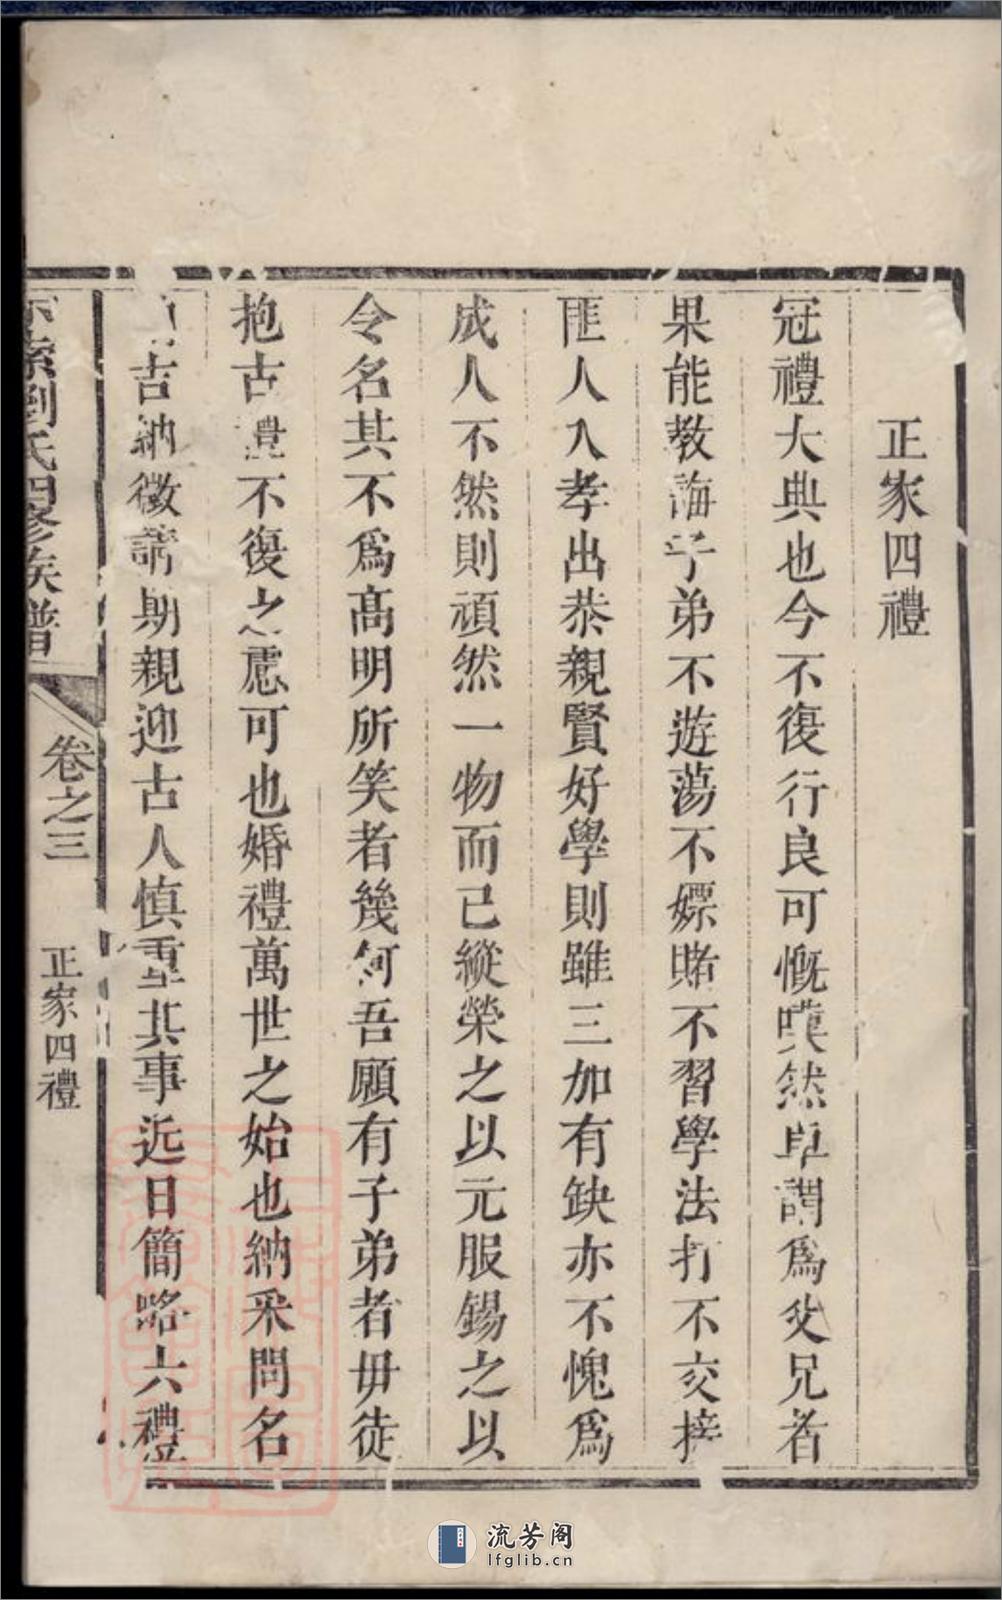 正家四禮
冠禮大典也今不復行良可慨嘆然卓謂爲父兄者
果能教誨子弟不遊蕩不嫖賭不習學法打不交接
匪人入孝出恭親賢好學則雖三加有缺亦不愧爲
成人不然則頑然一物而已縱榮之以元服錫之以
令名其不爲高明所笑者幾何吾願有子弟者毋徒
抱古禮不復之慮可也婚禮萬世之始也納采問名
吉納徵請期親迎古人慎重其事近日簡略六禮
索劉氏四修族譜
卷之三
正家四禮
流芳阁
lfglib.cn